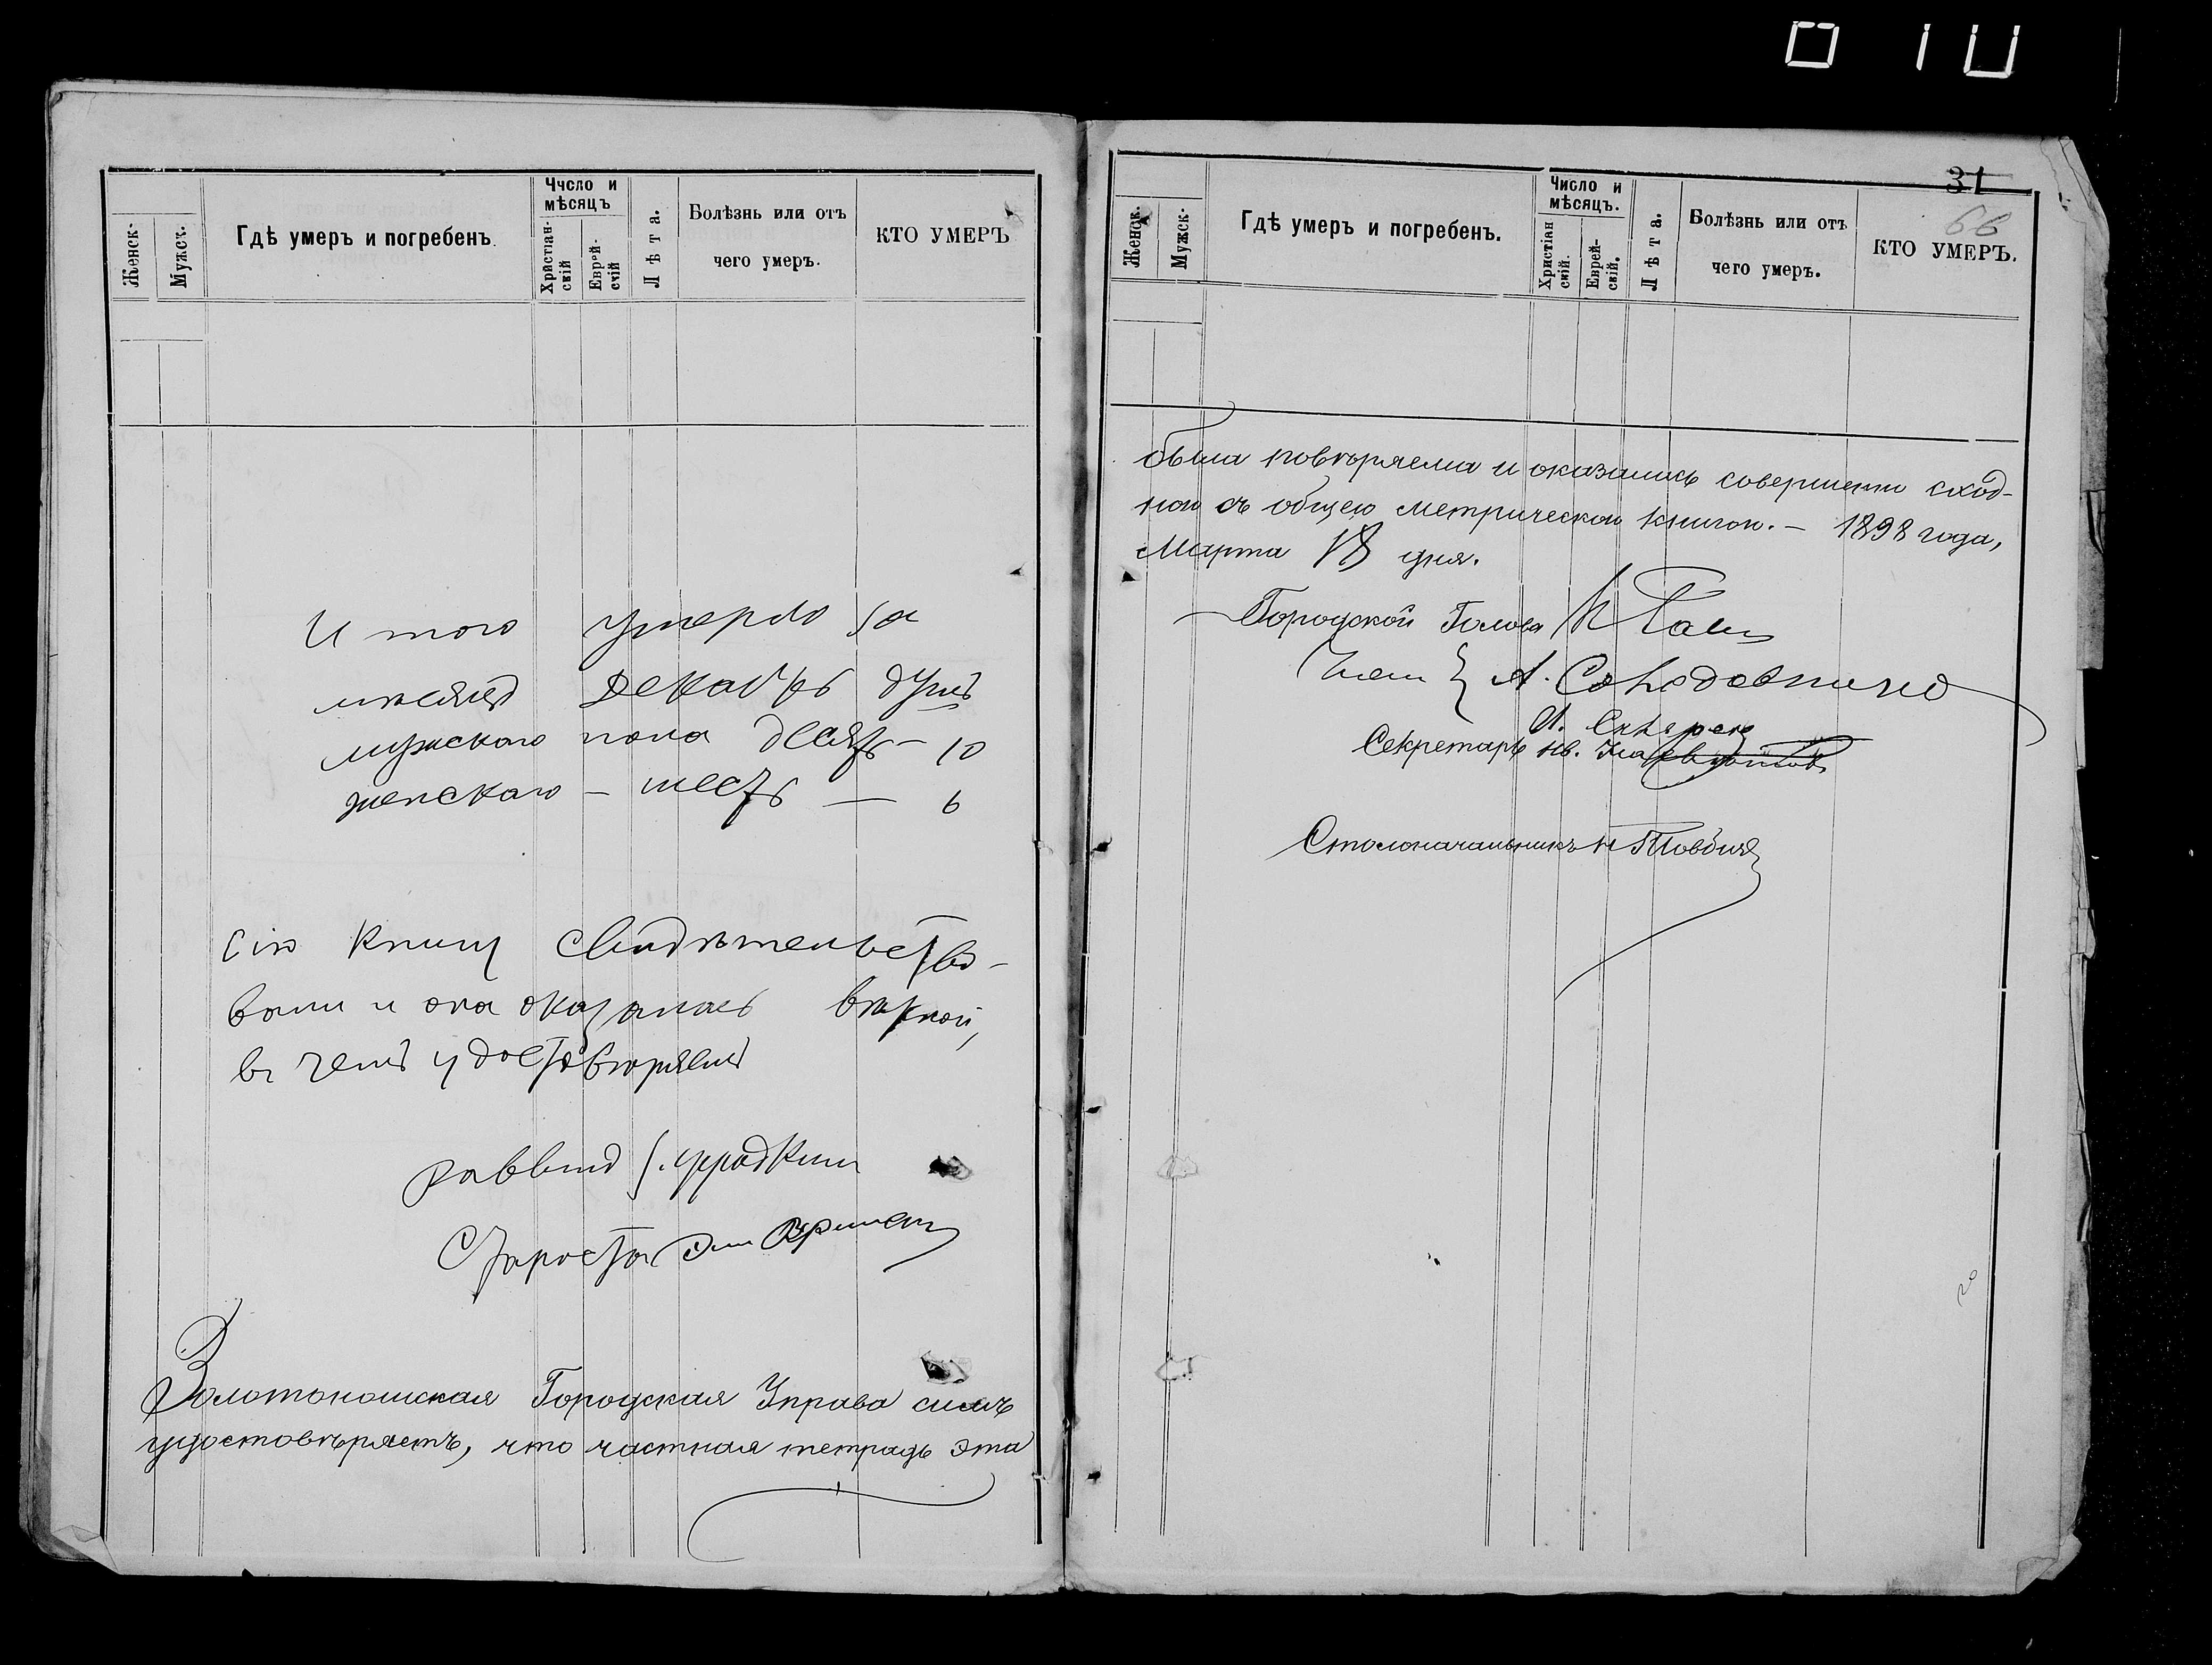 Женск.
Мужск.
Гдѣ умеръ и погребенъ.
Число и
мѣсяцъ
Христіан-
скій
Еврей-
скій
Лѣта.
Болѣзнь или отъ
чего умеръ.
КТО УМЕРЪ
Итого умерло за
мѣсяцъ Декабрь душъ
мужскаго пола десять — 10
женскаго — шесть — 6
Сію книгу свидѣтельство-
вали и она оказалась вѣрной,
въ чемъ удостовѣряемъ
Раввинъ
Староста
Золотоношская Городская Управа симъ
удостовѣряетъ, что частная тетрадь эта
31
66
Женск.
Мужск-
Гдѣ умеръ и погребенъ.
Число и
мѣсяцъ.
Христіан
скій.
Еврей-
скій.
Лѣта.
Болѣзнь или отъ
чего умеръ.
КТО УМЕРЪ.
была повѣряема и оказалась совершенно сход-
ной съ общею метрическою книгою. — 1898 года,
Марта 18 дня.
Городской Голова
Члены А.
Секретарь
Столоначальникъ